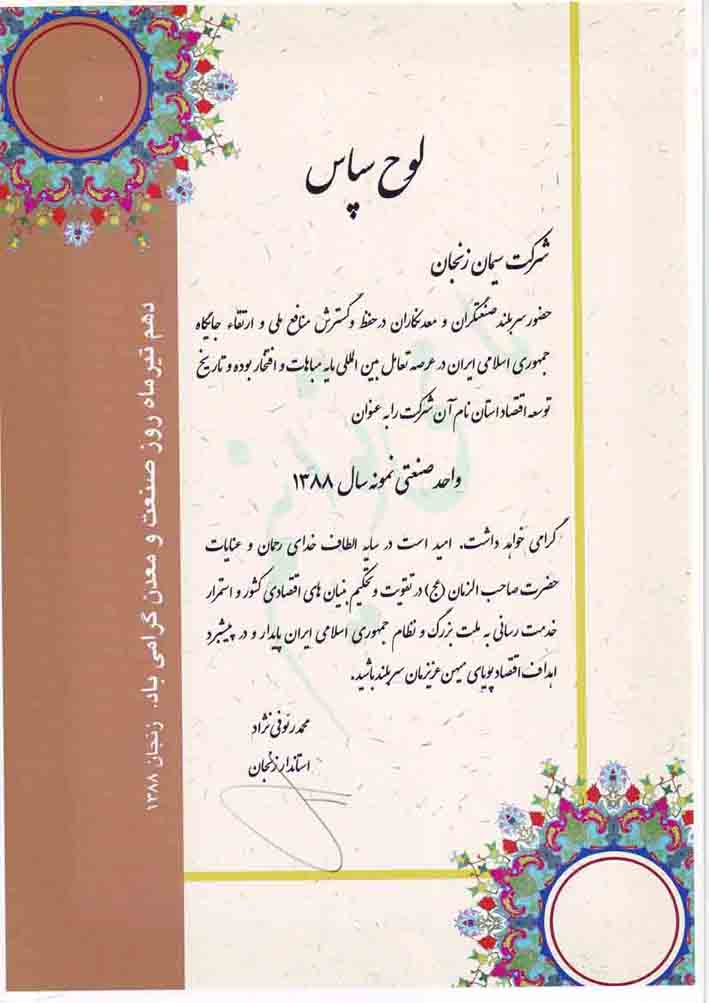 لوح سپاس
شرکت سیمان زنجان
حضور سربلند صنعتگران و معدنکاران در حفظ و گسترش منافع ملی و ارتقاء جایگاه
جمهوری اسلامی ایران در عرصه تعامل بین المللی مایه مباهات و افتخار بوده و تاریخ
توسعه اقتصاد استان نام آن شرکت را به عنوان
واحد صنعتی نمونه سال ۱۳۸۸
گرامی خواهد داشت. امید است در سایه الطاف خدای رحمان و عنایات
حضرت صاحب الزمان (عج) در تقویت و تحکیم بنیان های اقتصادی کشور و استمرار
خدمت رسانی به ملت بزرگ و نظام جمهوری اسلامی ایران پایدار و در پیشبرد
اهداف اقتصاد پویای میهن عزیزمان سربلند باشید.
محمد رئوفی نژاد
استاندار زنجان
دهم تیر ماه روز صنعت و معدن گرامی باد. زنجان ۱۳۸۸